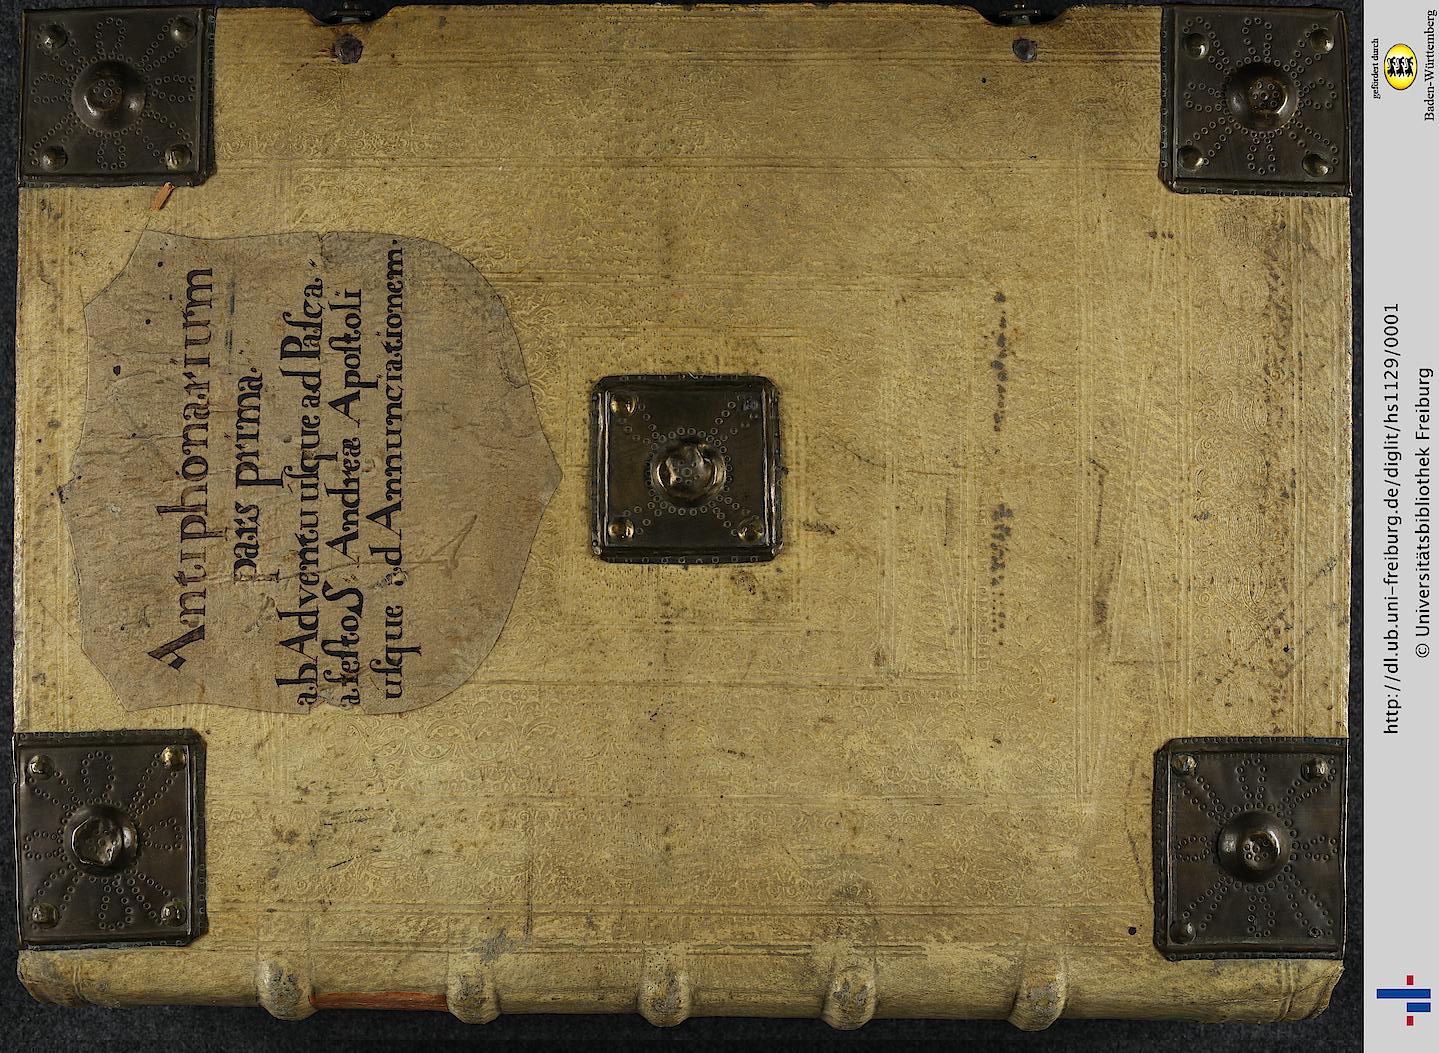 Antiphonarium
pars prima.
ab Adventu uſque ad Paſca.
a feſto S Andreæ Apoſtoli
uſque ad Annunciationem.
gefördert durch
Baden-Württemberg
http://dl.ub.uni-freiburg.de/diglit/hs1129/0001
© Universitätsbibliothek Freiburg